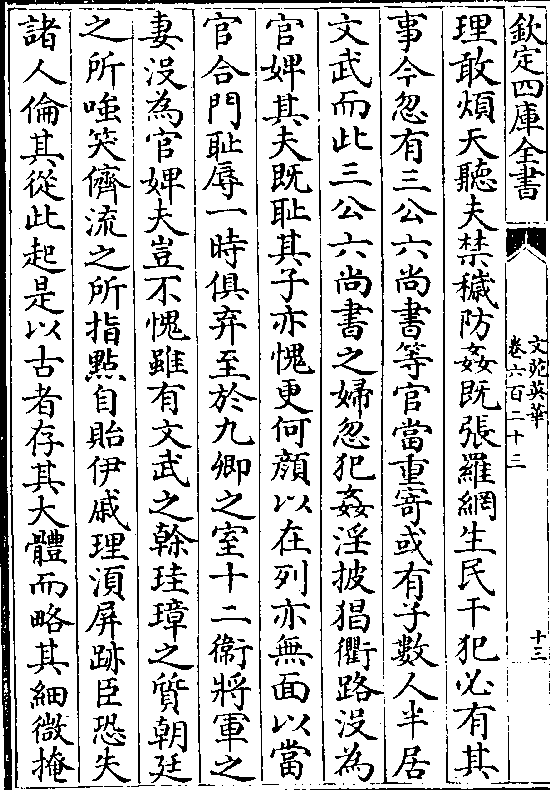 欽定四庫全書
文苑英華
卷六百二十三
十三
理敢煩天聽夫禁穢防姦既張羅網生民干犯必有其
事今忽有三公六尚書等官當重寄或有子數人半居
文武而此三公六尚書之婦忽犯姦淫披猖衢路没為
官婢其夫既耻其子亦愧更何顔以在列亦無面以當
官合門耻辱一時俱弃至於九卿之室十二衞將軍之
妻没為官婢夫豈不愧雖有文武之榦珪璋之質朝廷
之所嗤笑儕流之所指點自貽伊戚理湏屏跡臣恐失
諸人倫其從此起是以古者存其大體而略其細微掩